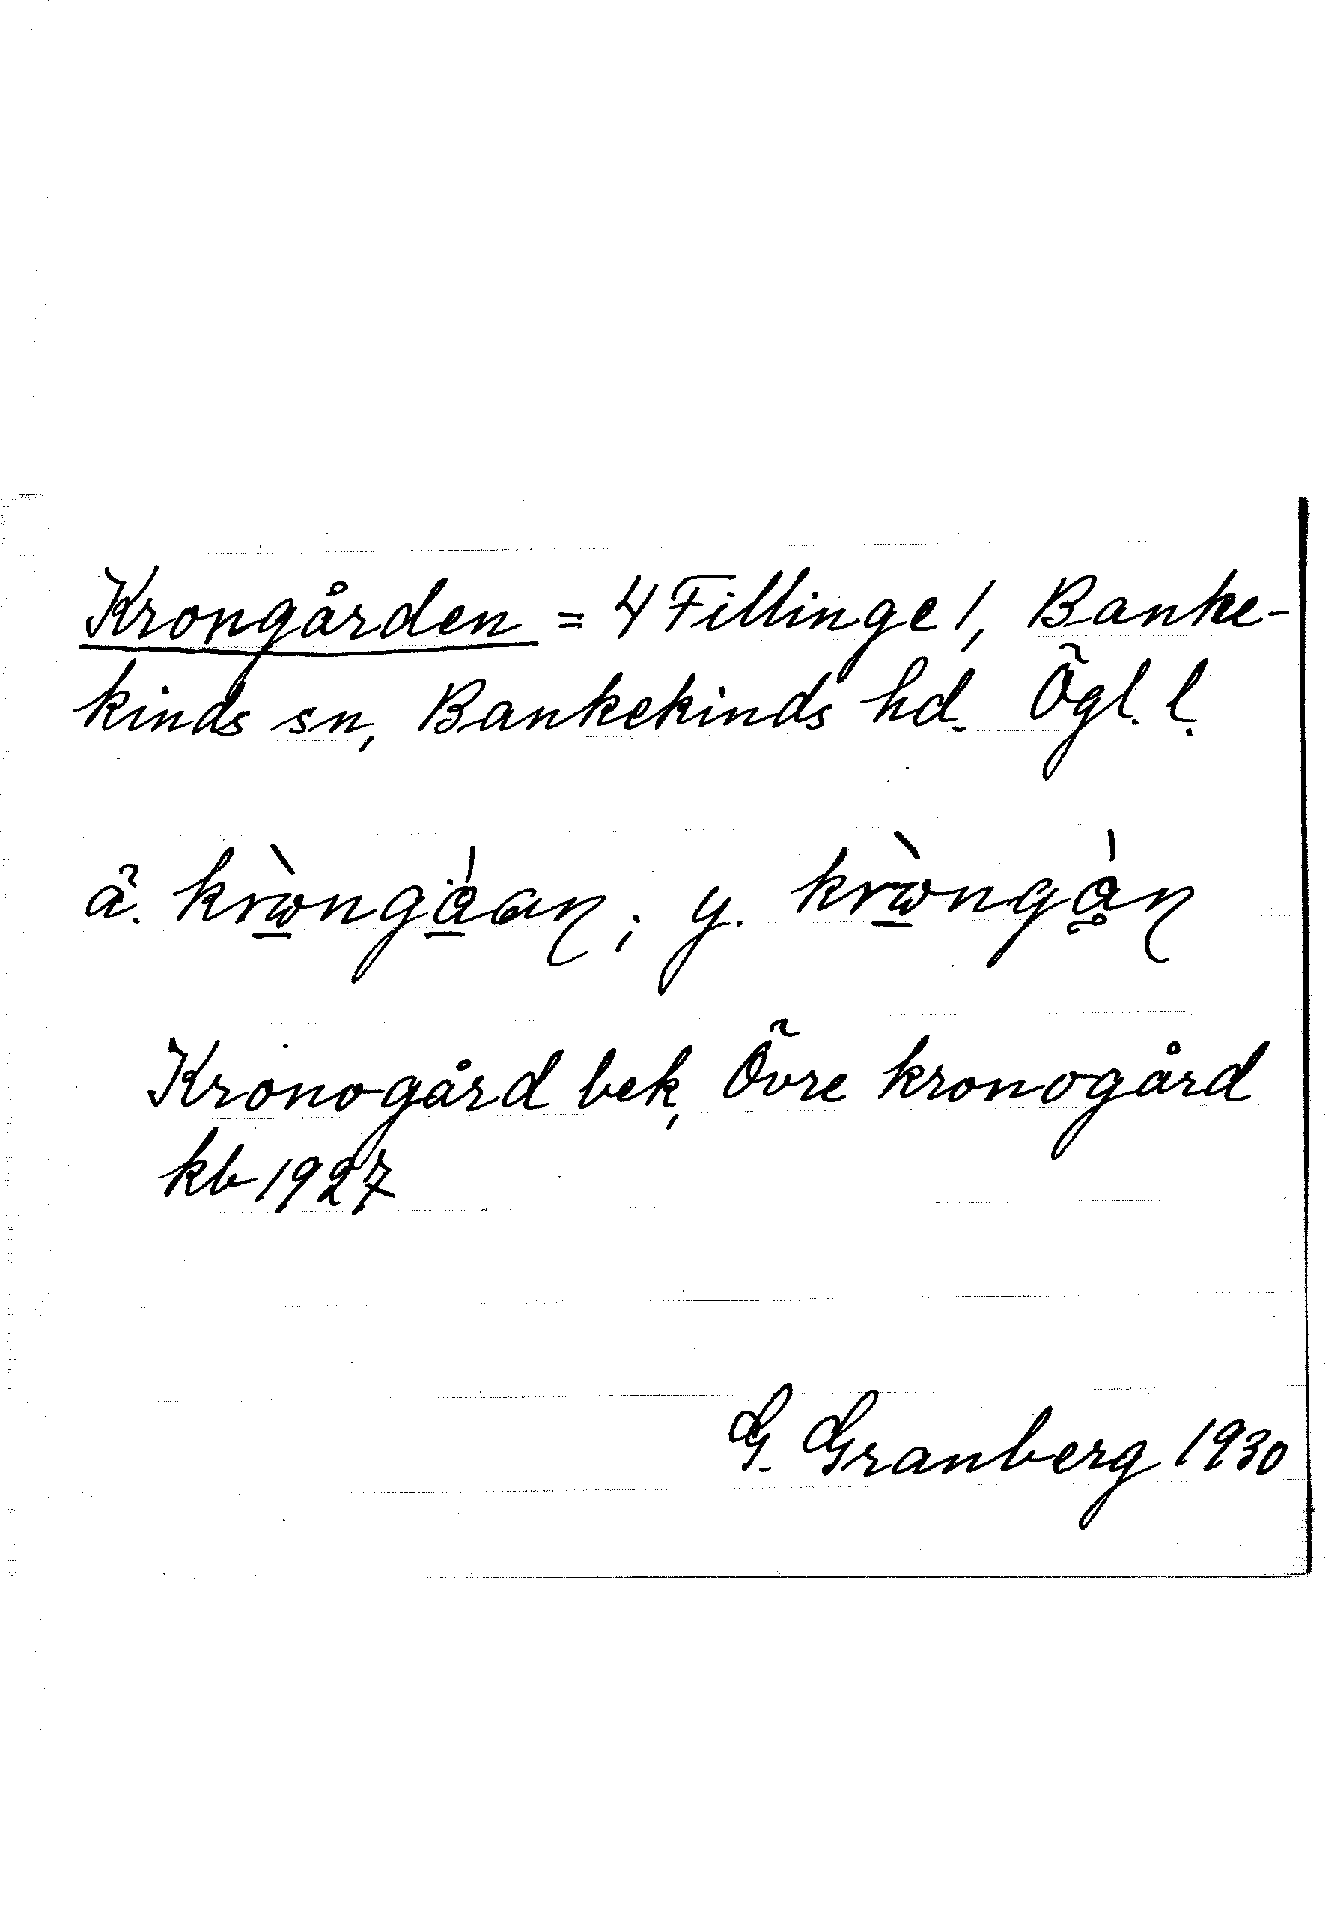 Krongården = 4 Fillinge 1, Banke-
kinds sn, Bankekinds hd. Ögl. l.
ä. kròngáan; y. kròngán
Kronogård bek, Övre kronogård
kb 1927
G. Granberg 1930